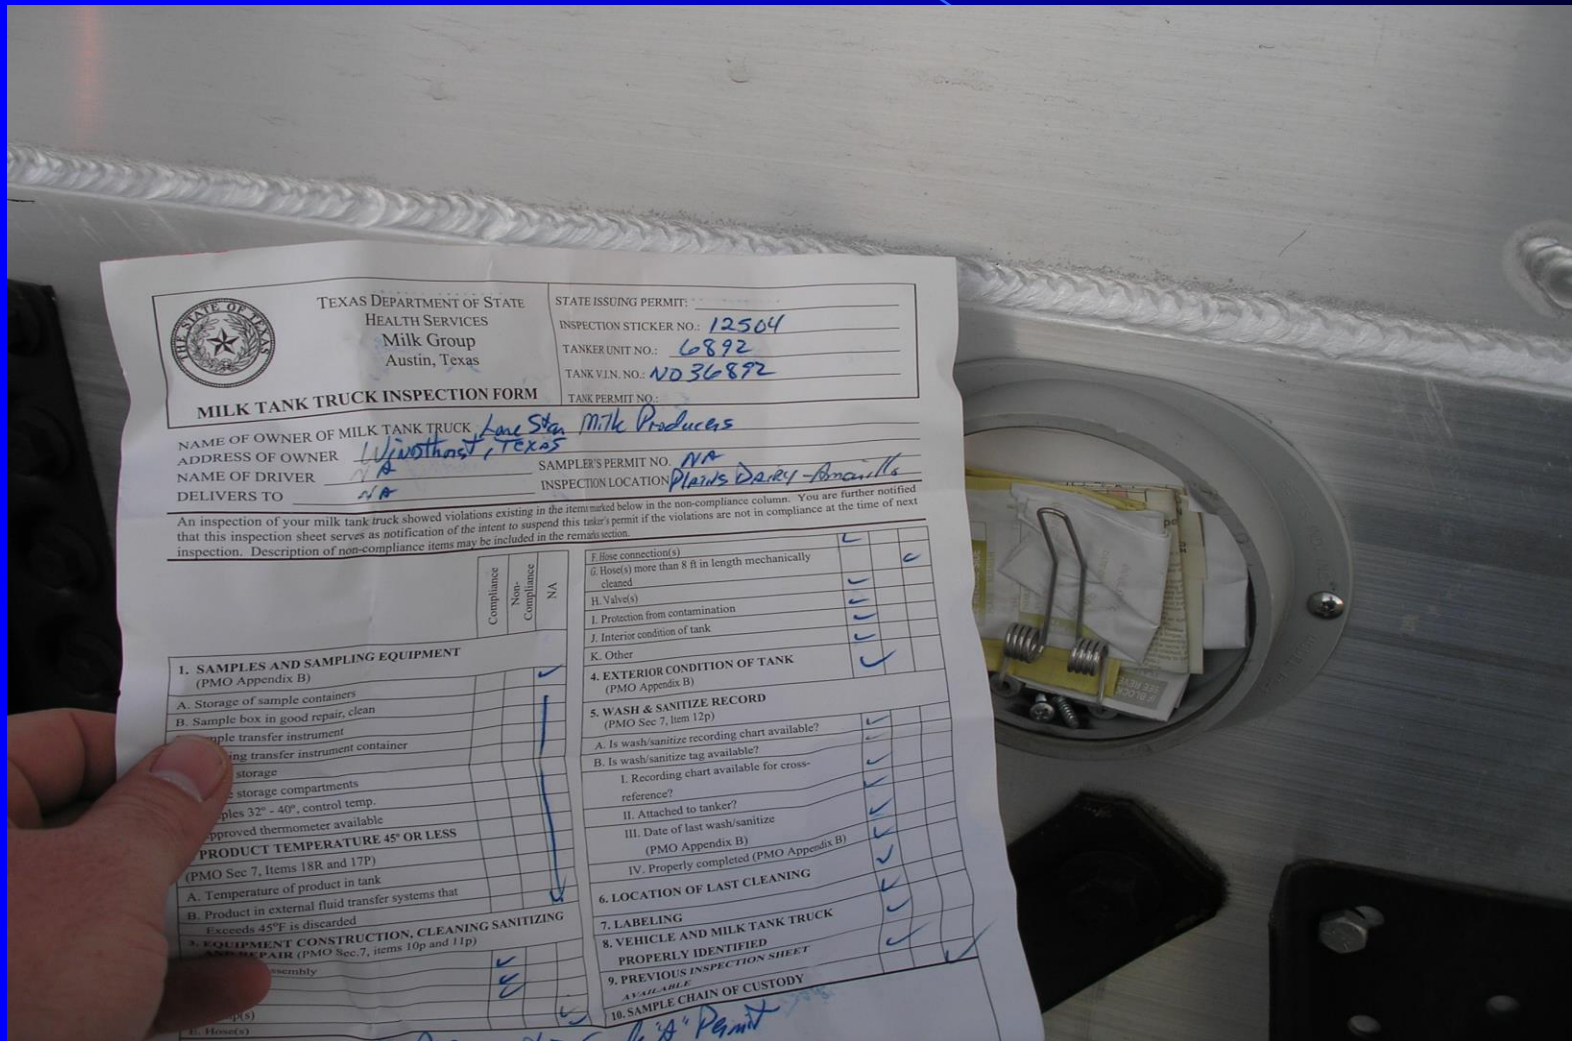 THE STATE OF TEXAS
TEXAS DEPARTMENT OF STATE
HEALTH SERVICES
Milk Group
Austin, Texas
MILK TANK TRUCK INSPECTION FORM
STATE ISSUING PERMIT:
INSPECTION STICKER NO.: 12504
TANKER UNIT NO.: 6892
TANK V.I.N. NO.: ND36892
TANK PERMIT NO.:
NAME OF OWNER OF MILK TANK TRUCK Lone Star Milk Producers
ADDRESS OF OWNER Windthorst, TEXAS
NAME OF DRIVER NA SAMPLER'S PERMIT NO. NA
DELIVERS TO NA INSPECTION LOCATION PLAINS DAIRY - Amarillo
An inspection of your milk tank truck showed violations existing in the items marked below in the non-compliance column. You are further notified
that this inspection sheet serves as notification of the intent to suspend this tanker's permit if the violations are not in compliance at the time of next
inspection. Description of non-compliance items may be included in the remarks section.
Compliance
Non-
Compliance
NA
1. SAMPLES AND SAMPLING EQUIPMENT
(PMO Appendix B)
A. Storage of sample containers
B. Sample box in good repair, clean
transfer instrument
transfer instrument container
storage
storage compartments
32° - 40°, control temp.
thermometer available
PRODUCT TEMPERATURE 45° OR LESS
(PMO Sec 7, Items 18R and 17P)
A. Temperature of product in tank
B. Product in external fluid transfer systems that
Exceeds 45°F is discarded
3. EQUIPMENT CONSTRUCTION, CLEANING SANITIZING
AND REPAIR (PMO Sec.7, items 10p and 11p)
E. Hose(s)
F. Hose connection(s)
G. Hose(s) more than 8 ft in length mechanically
cleaned
H. Valve(s)
I. Protection from contamination
J. Interior condition of tank
K. Other
4. EXTERIOR CONDITION OF TANK
(PMO Appendix B)
5. WASH & SANITIZE RECORD
(PMO Sec 7, Item 12p)
A. Is wash/sanitize recording chart available?
B. Is wash/sanitize tag available?
I. Recording chart available for cross-
reference?
II. Attached to tanker?
III. Date of last wash/sanitize
(PMO Appendix B)
IV. Properly completed (PMO Appendix B)
6. LOCATION OF LAST CLEANING
7. LABELING
8. VEHICLE AND MILK TANK TRUCK
PROPERLY IDENTIFIED
9. PREVIOUS INSPECTION SHEET
AVAILABLE
10. SAMPLE CHAIN OF CUSTODY
"A" Permit